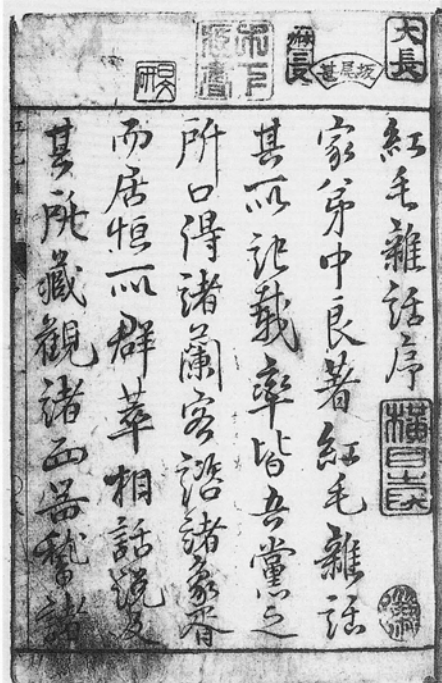 大長
長
紅毛雜話序
家弟中良著紅毛雜話
其所記載率皆吾黨之
所口得諸蘭客諮諸象胥
而居恒所群萃相話說及
其所藏觀諸器諸